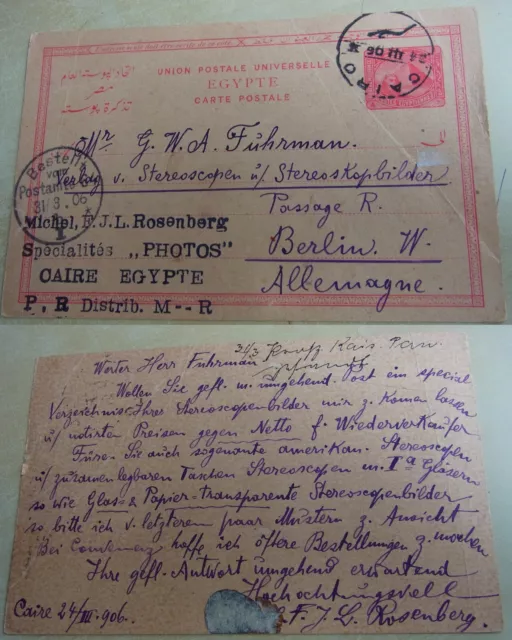 UNION POSTALE UNIVERSELLE
EGYPTE
CARTE POSTALE
اتحاد بوستة العام
مصر
تذكرة بوستة
CAIRO
24 III 06
Mr G. W. A. Fuhrman.
Verlag v. Stereoscopen u/ Stereoskopbilder
Passage R.
Berlin. W.
Allemagne.
Bestellt
vom
Postamte
31/3.06
1
Michel, F. J. L. Rosenberg
Spécialités „PHOTOS"
CAIRE EGYPTE
P, R Distrib. M--R
31/3 Kais. Pan.
Werter Herr Fuhrman
Wollen Sie gefl. m. umgehend. Post ein special
Verzeichnis Ihrer Stereoscopenbilder mir z. Komen lassen
u/ notirten Preisen gegen Netto f. Wiederverkäufer
Füre Sie auch sogenante amerikan. Stereoscopen
u/ zusamenlegbaren Taschen Stereoscopen m. Ia Gläsern
so wie Glas- & Papier-transparente Stereoscopenbilder
so bitte ich v. letzteren paar Mustern z. Ansicht
Bei hoffe ich öftere Bestellungen z. machen
Ihre gefl. Antwort umgehend erwartend
Hochochtungsvoll
F. J. L. Rosenberg.
Caire 24/III 906.